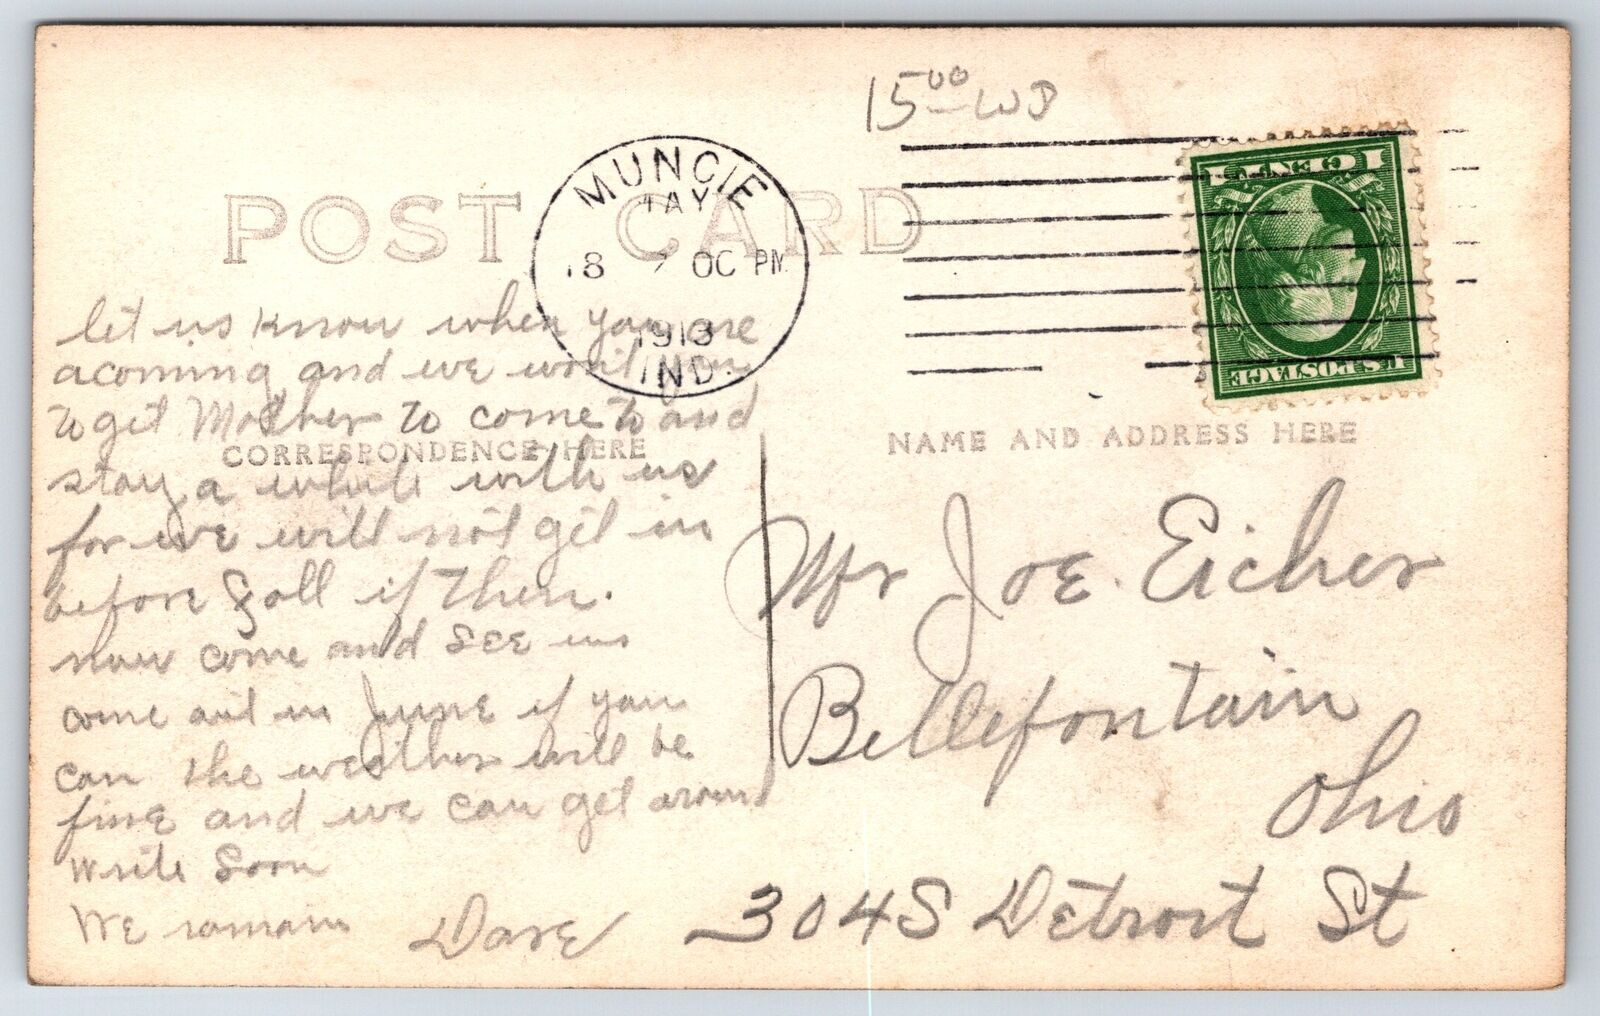 15⁰⁰ WB
POST CARD
MUNCIE
MAY
18 7 00 PM
1913
IND.
1 CENT 1
U.S. POSTAGE
let us know when you are
acoming and we want you
to get Mother to come to and
CORRESPONDENCE HERE
stay a while with us
for we will not git in
before Fall if then.
now come and see us
come out in June if you
can the weather will be
fine and we can get around
write Soon
We ramain Dave
NAME AND ADDRESS HERE
Mr Joe. Eicher
Bellefontain
Ohio
304 S Detroit St